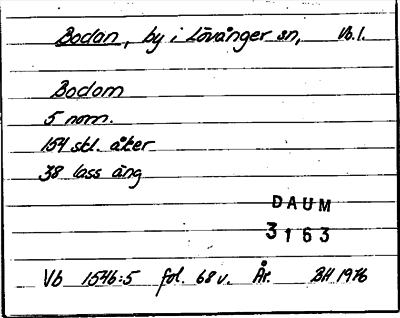 Bodan, by i Lövånger sn, Vb.l.
Bodom
5 nom.
154 skl. åker
38 lass äng
DAUM
3163
Vb 1546:5 fol. 68 v. År. BH 1976